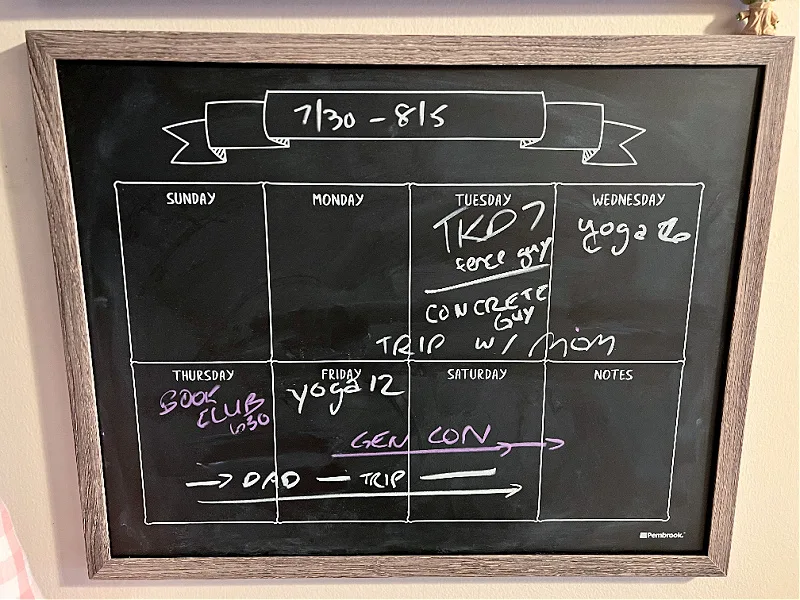 7/30 - 8/5
SUNDAY
MONDAY
TUESDAY
TKD 7
fence guy
CONCRETE
GUY
WEDNESDAY
yoga 6
TRIP W/ MOM
THURSDAY
BOOK
CLUB
630
FRIDAY
yoga 12
SATURDAY
NOTES
GEN CON
→ DAD — TRIP —
Pembrook